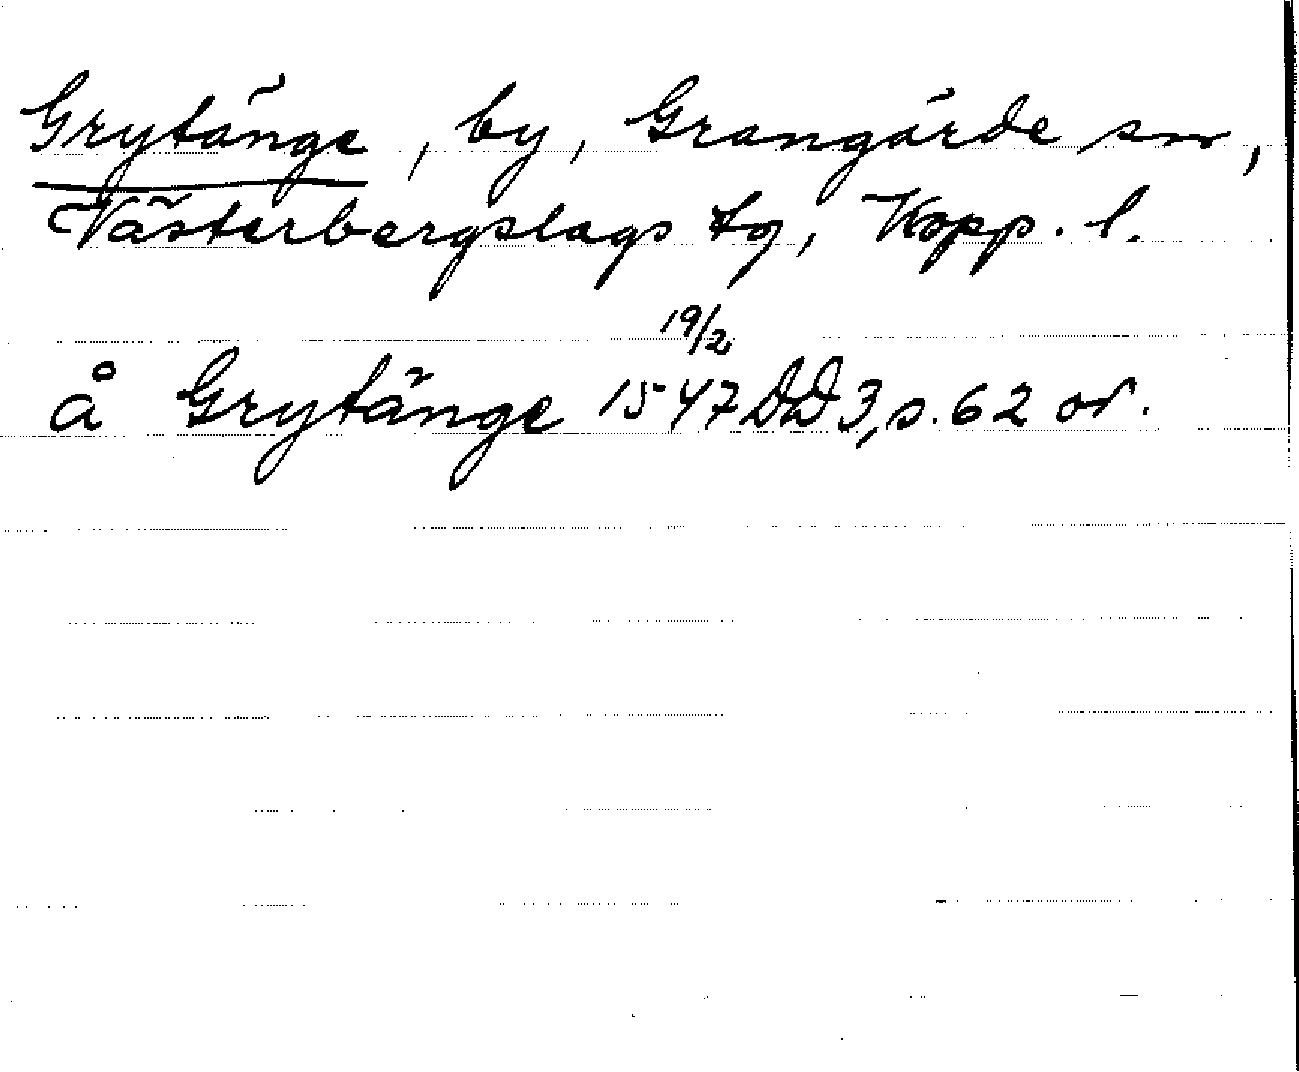 Grytänge, by, Grangärde sn,
Västerbergslags tg, Kopp. l.
19/2
å Grytänge 1547 DD 3, s. 62 or.